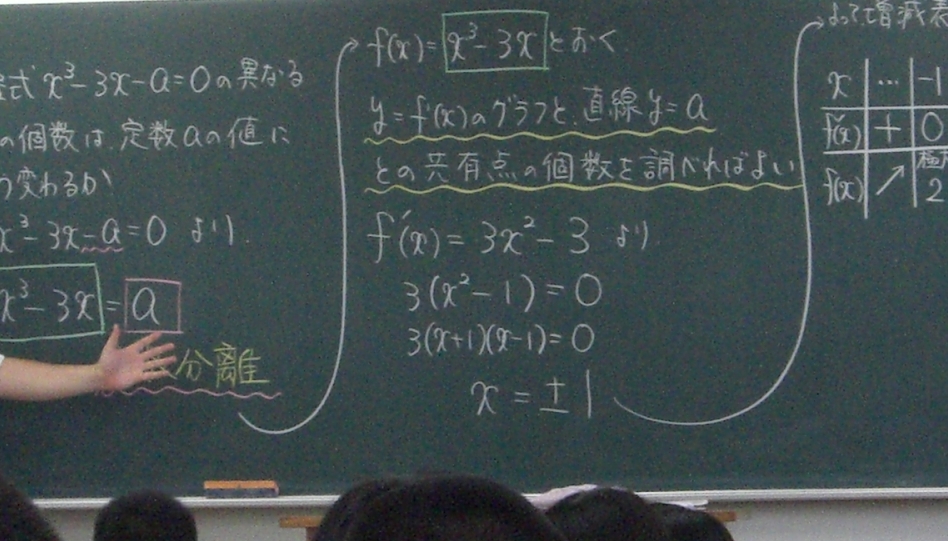 式 x³-3x-a=0の異なる
の個数は、定数aの値に
う変わるか
x³-3x-a=0 より
x³-3x = a
分離
f(x)= x³-3x とおく
y=f(x)のグラフと、直線y=a
との共有点の個数を調べればよい
f'(x)=3x²-3 より
3(x²-1)=0
3(x+1)(x-1)=0
x=±1
よって増減表
x … -1
f'(x) + 0
f(x) ↗ 極 2